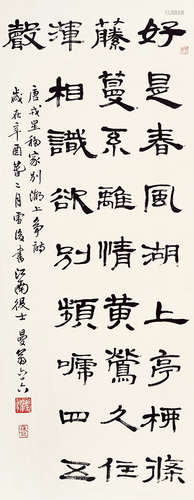 好是春風湖上亭桺條
藤蔓系離情黃鶯久住
渾相識欲別頻啼四五
聲
唐戎昱移家別湖上亭詩
歲在辛酉旾二月雪後書江南士曼翁六六